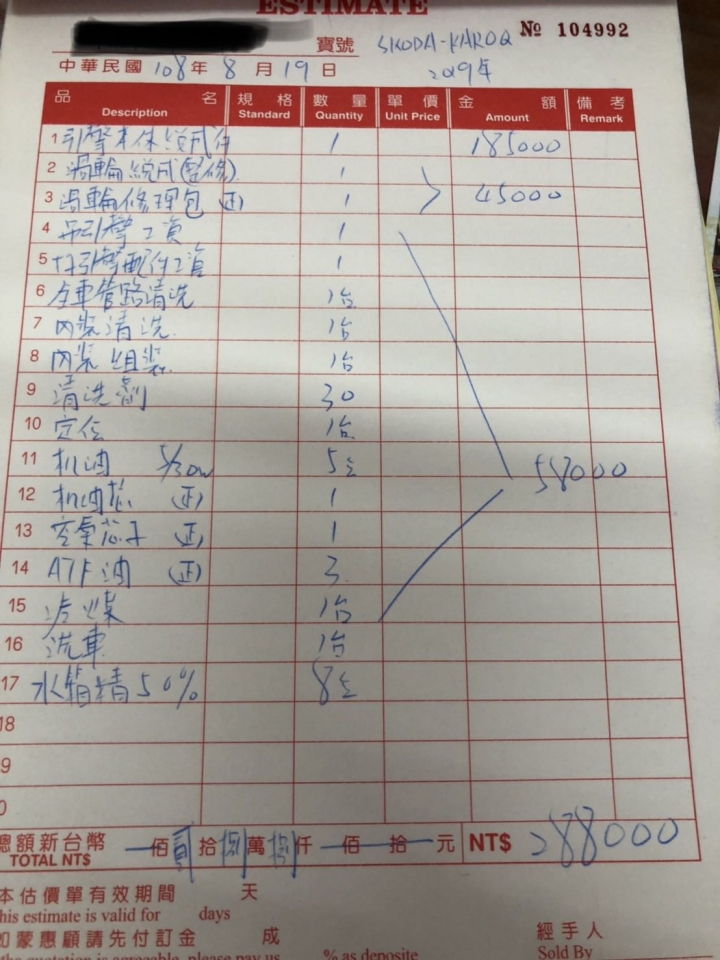 ESTIMATE
寶號 SKODA-KAROQ № 104992
中華民國 108 年 8 月 19 日 2019年
品名 規格 數量 單價 金額 備考
Description Standard Quantity Unit Price Amount Remark
1 引擎本体総成件 1 185000
2 渦輪総成(整修) 1
3 渦輪修理包 (正) 1 45000
4 吊引擎工資 1
5 引擎配件工資 1
6 全車管路清洗 1台
7 內裝清洗 1台
8 內裝組裝 1台
9 清洗劑 30
10 定位 1台
11 机油 5/30W 5
12 机油芯 (正) 1
13 空氣芯子 (正) 1
14 ATF油 (正) 3
15 冷煤 1台
16 洗車 1台
17 水箱精50% 8
58000
18
9
0
總額新台幣 佰貳拾捌萬捌仟佰拾元 NT$ 288000
TOTAL NT$
本估價單有效期間 天
his estimate is valid for days
如蒙惠顧請先付訂金 成 經手人
the quotation is agreeable, please pay us % as deposite Sold By